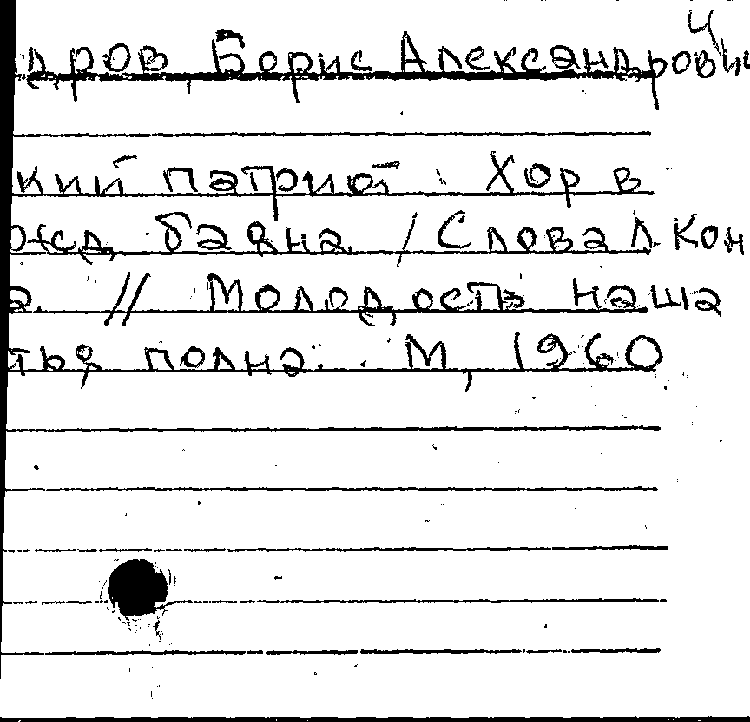 дров, Борис Александрович
кий патриот : Хор в
ожд, баяна. / Слова А. Кон
а. // Молодость наша
тья полна. . М, 1960